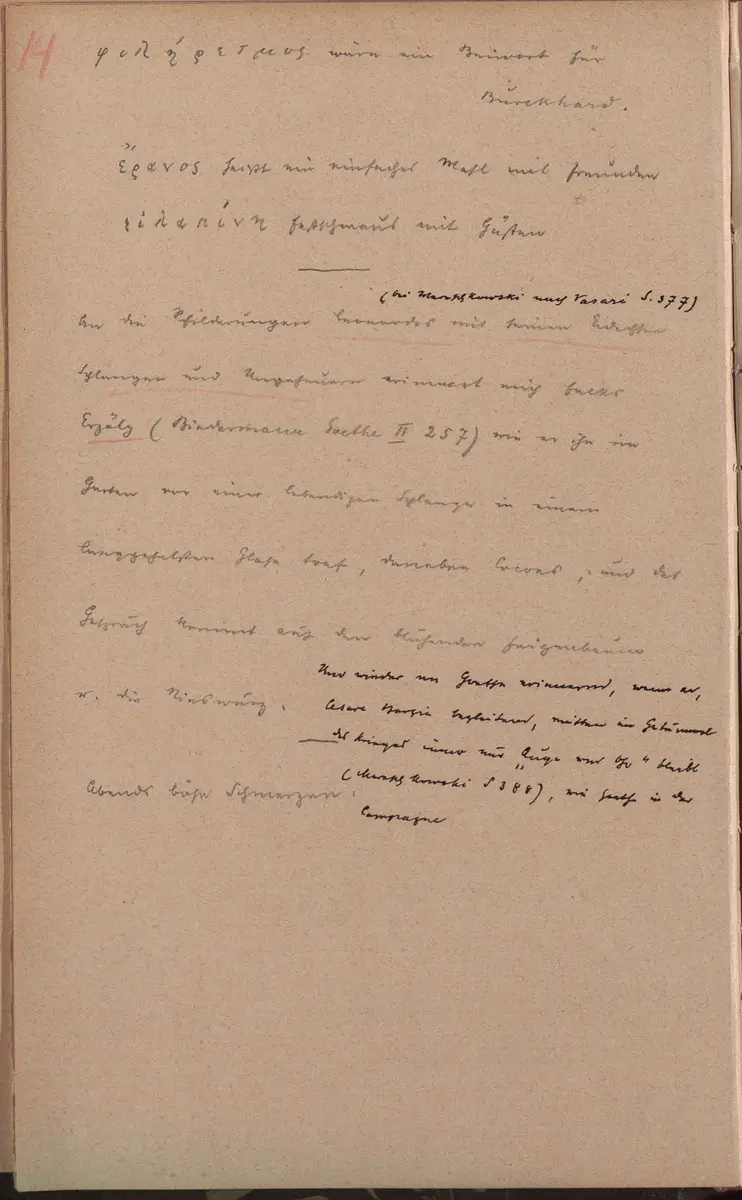 14
φιλήρετμος wäre ein Beiwort für
Burckhard.
ἔρανος heißt ein einfaches Mahl mit Freunden
εἰλαπίνη Festschmaus mit Gästen
(bei Mereschkowski nach Vasari S. 377)
An die Schilderungen Leonardos mit seinen Eidechsen
Schlangen und Ungeheuern erinnert mich
Erzälg (Biedermann Goethe II 257) wie er ihn im
Garten vor einer lebendigen Schlange in einem
langgehalsten Glase traf, daneben Cocons, und das
Gespräch kommt auf den blühenden Feigenbaum
u. die Nieswurz.
Und wieder an Goethe erinnernd, wenn er,
Cesare Borgia begleitend, mitten im Getümmel
des Krieges immer nur „Auge und Ohr" bleibt
(Mereschkowski S 388), wie Goethe in der
Campagne
Abends böse Schmerzen.